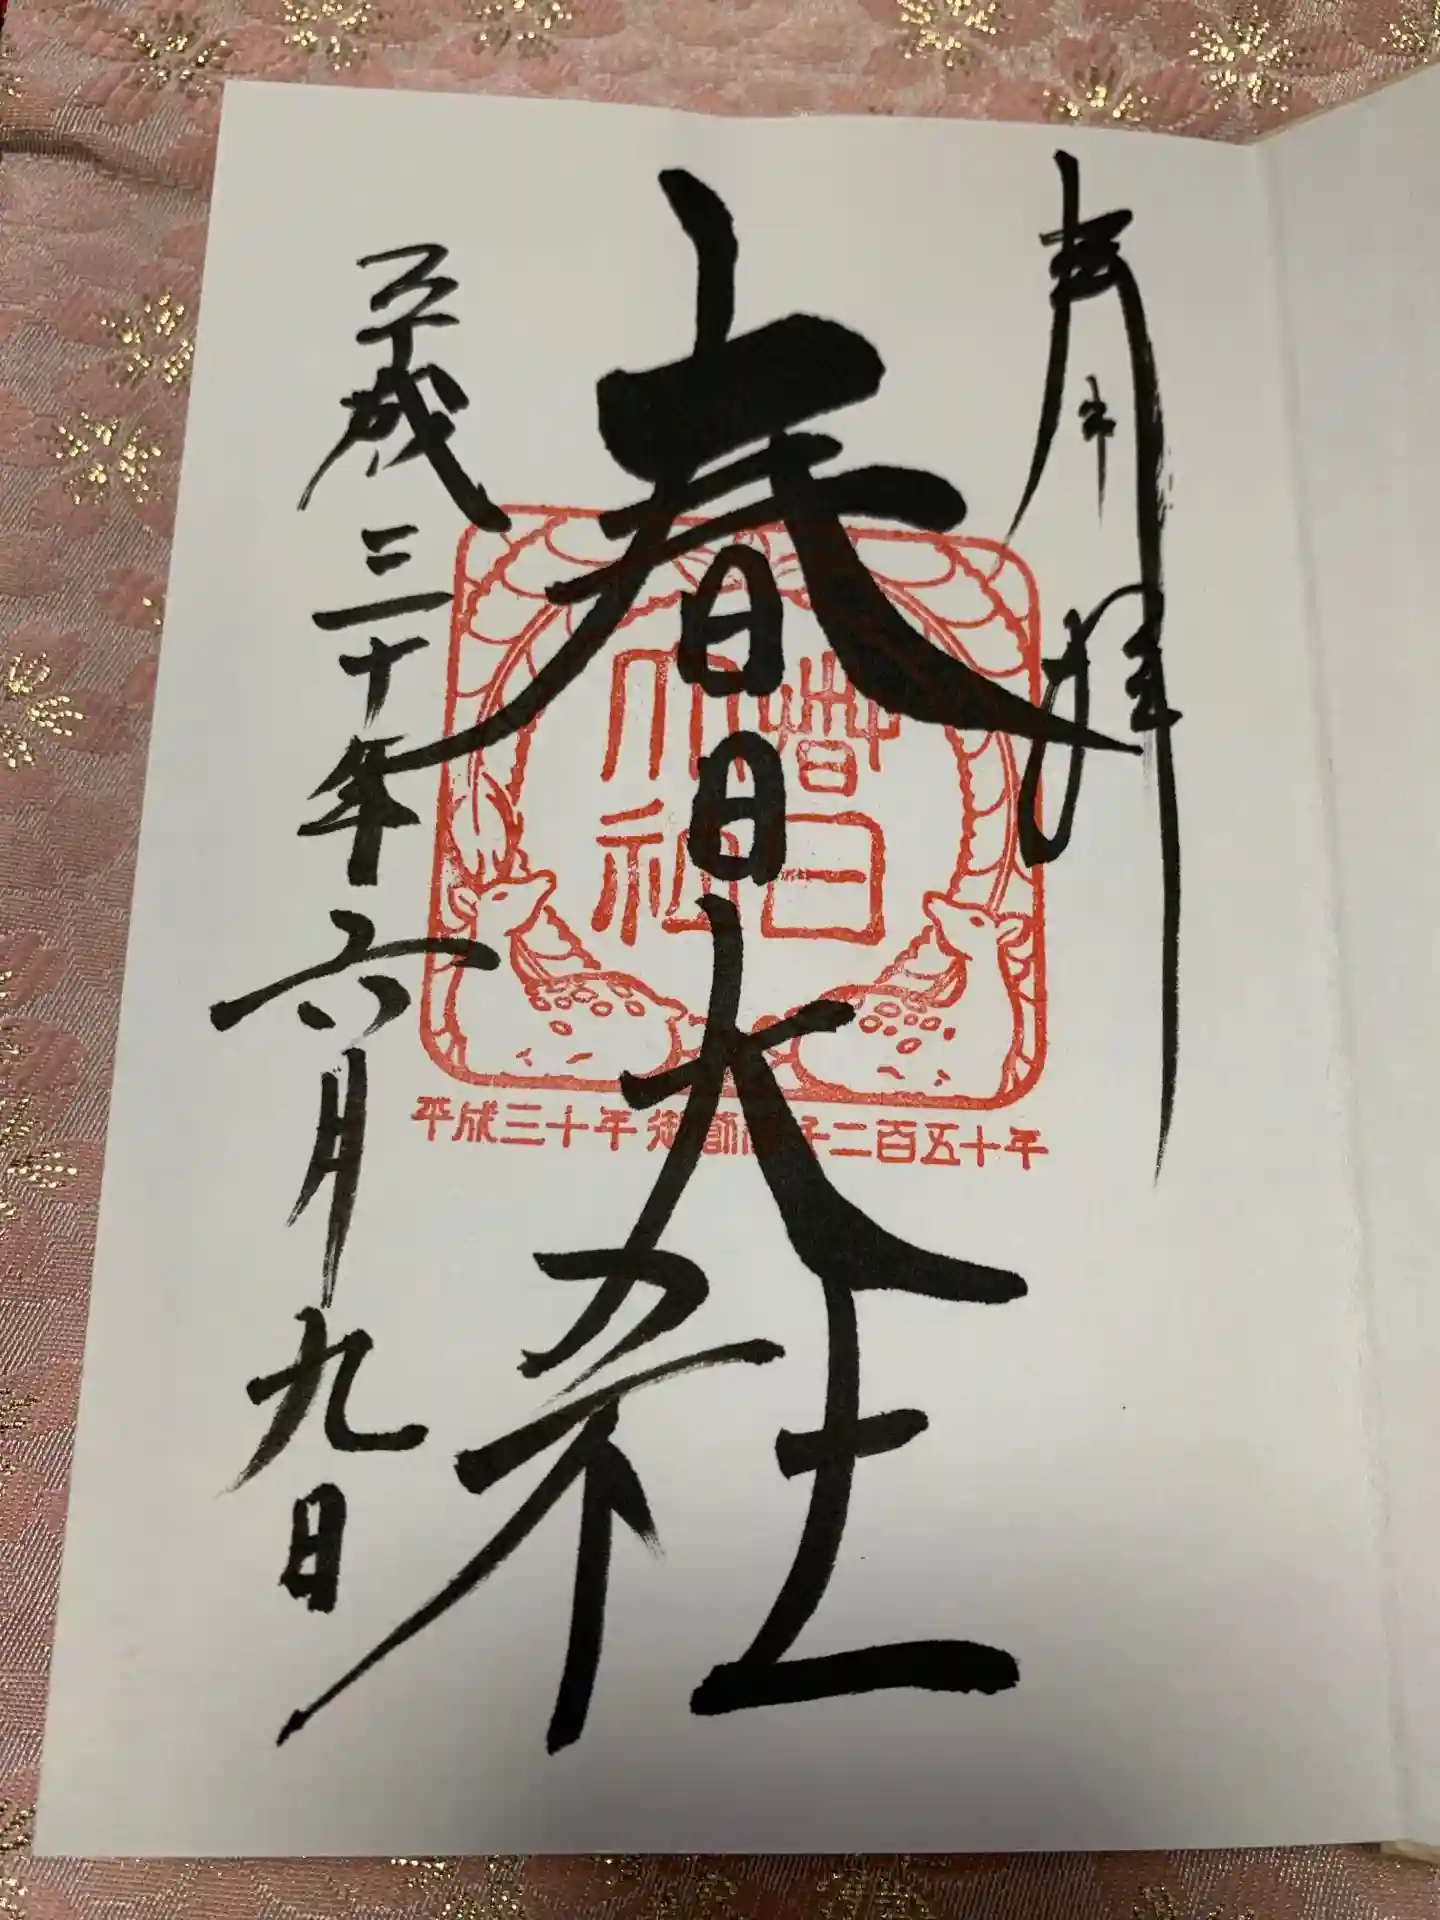 奉拝
春日大社
平成三十年六月九日
春日
大社
平成三十年 御創建千二百五十年